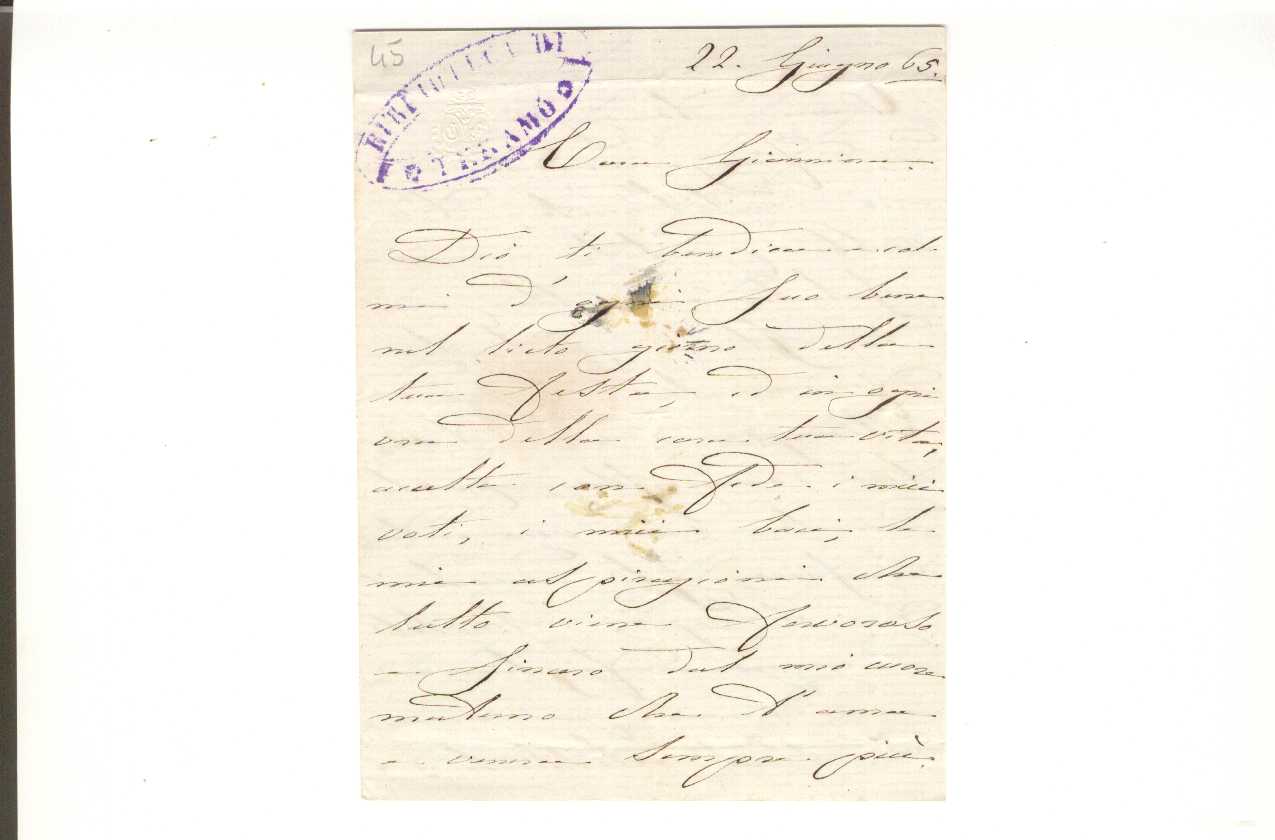 45
BIBLIOTECA DI
TERAMO
22. Giugno 65.
Cara Giannina
Dio ti benedica e col-
mi d'ogni suo bene
nel lieto giorno della
tua Festa, ed in ogni
ora della cara tua vita,
accetta con Fede i miei
voti, i miei baci, le
mie aspirazioni che
tutto viene fervoroso
e sincero dal mio cuore
materno che t'ama
e venera sempre più.